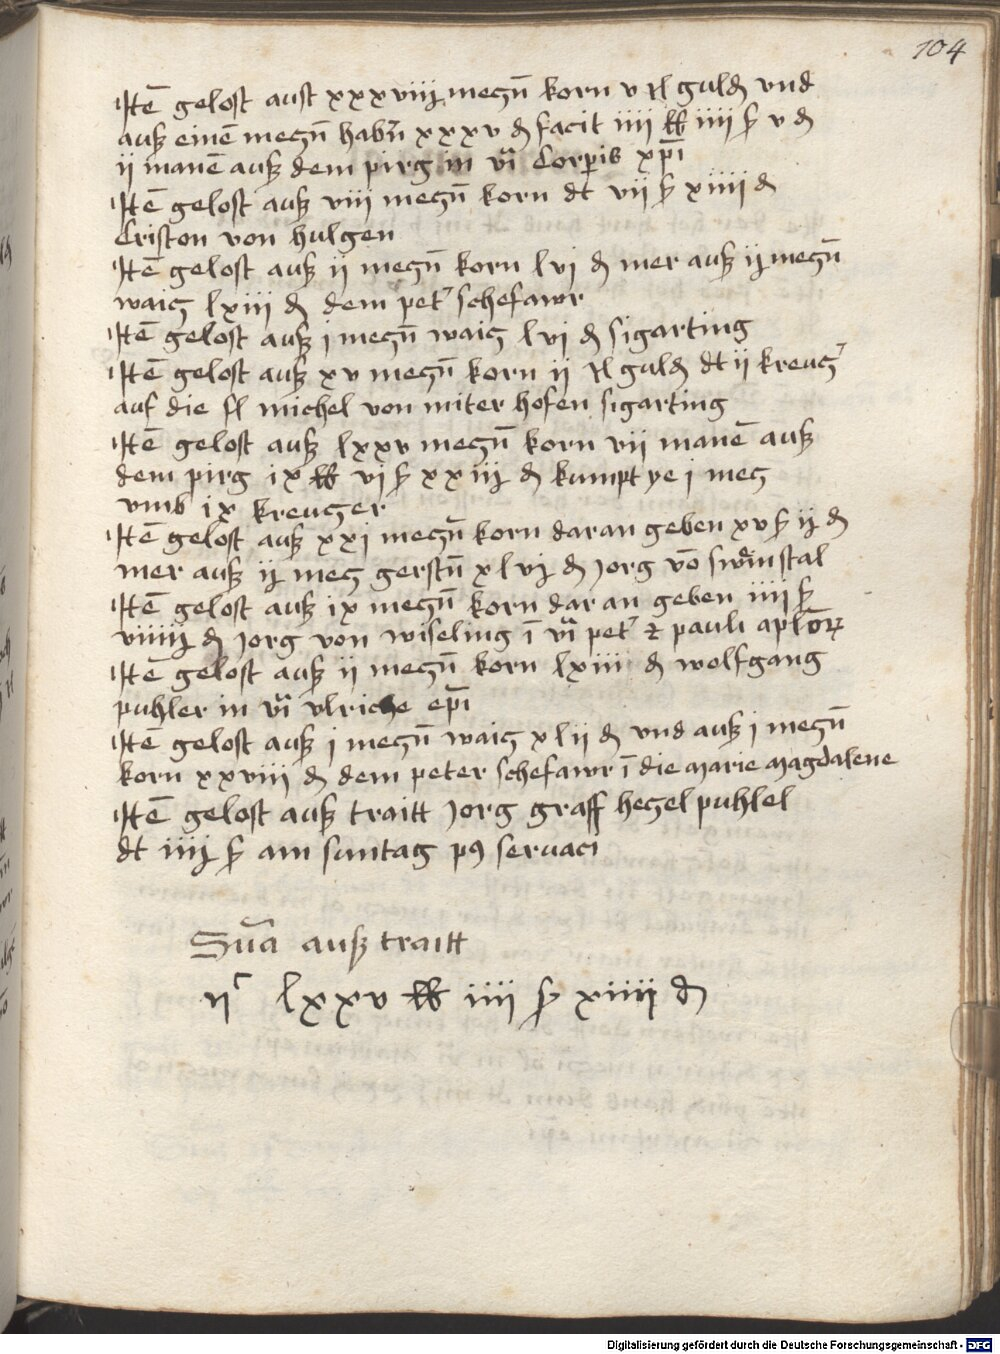 104
Itē gelost aust xxxviij megn̄ korn v Rl guldn̄ vnd
auß einē megn̄ habn̄ xxxv ₰ facit iiii ℔ iiii ß v ₰
ii manē auß dem pirg in vi͞a Corpis xp̄i
Itē gelost auß viii megn̄ korn dt vii ß xiiii ₰
Criston von hulgen
Itē gelost auß ij megn̄ korn lvi ₰ mer auß ij megn̄
waiȝ lxiii ₰ dem pet͛ schefawr
Itē gelost auß j megn̄ waiȝ lvi ₰ sigarting
Itē gelost auß xv megn̄ korn ij Rl guldn̄ dt ij kreuȝ͛
auf die fl michel von miter hofen sigarting
Itē gelost auß lxxv megn̄ korn vii manē auß
dem pirg ix ℔ vi ß xxiij ₰ kumpt ye j meȝ
vmb ix kreuȝer
Itē gelost auß xxj megn̄ korn daran geben xv ß ij ₰
mer auß ij meȝ gerstn̄ xlvj ₰ Jorg vō swein stal
Itē gelost auß ix megn̄ korn daran geben iiii ß
viiij ₰ Jorg von wiseling ī vi͞a pet͛ ⁊ pauli apl̄oꝝ
Itē gelost auß ij megn̄ korn lxiii ₰ wolfgang
puhler in vi͞a vlriche ep̄i
Itē gelost auß j megn̄ waiȝ xlij ₰ vnd auß j megn̄
korn xxviii ₰ dem peter schefawr ī die marie magdalene
Itē gelost auß traitt Jorg graff heȝel puhlel
dt iiij ß am suntag pꝯ seruaci
Sūa auß traitt
ijᶜ lxxv ℔ iiii ß xiiii ₰
Digitalisierung gefördert durch die Deutsche Forschungsgemeinschaft - DFG